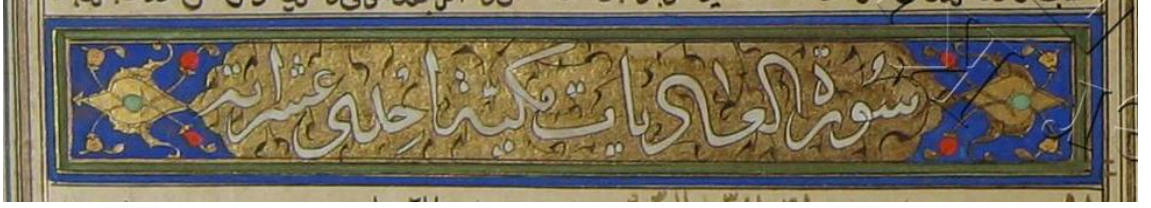 سورة العاديات مكية احدى عشر آية